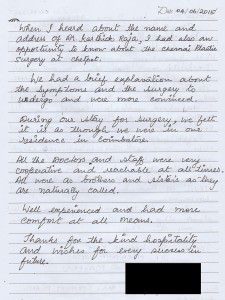 Dt: 04/06/2015
When I heard about the name and
address of Dr Karthick Raja, I had also an
opportunity to know about the Chennai Plastic
Surgery at Chetpet.
We had a brief explanation about
the symptoms and the surgery to
undergo and were more convinced.
During our stay for surgery, we felt
it is as though we were in our
residence in Coimbatore.
All the Doctors and staff were very
cooperative and reachable at all times.
All were as brothers and sisters as they
are naturally called.
Well experienced and had more
comfort at all means.
Thanks for the kind hospitality
and wishes for every success in
future.